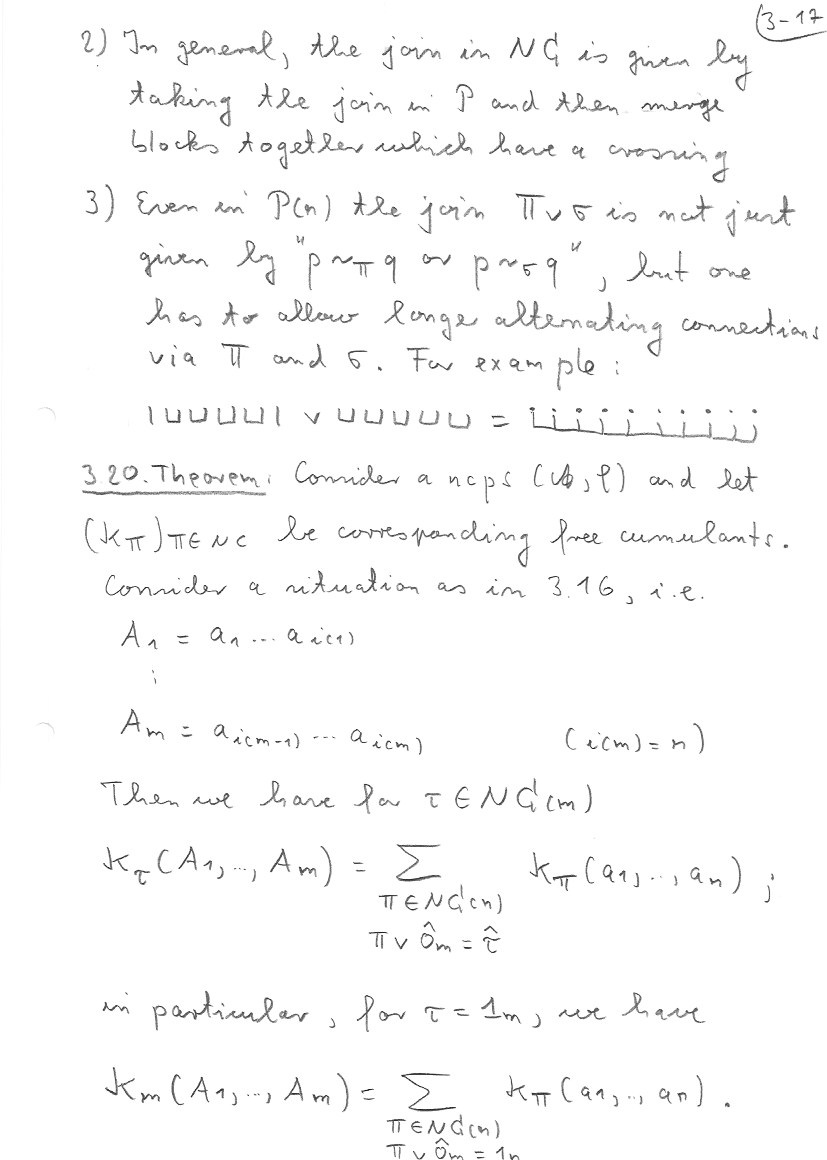 3-17
2) In general, the join in NC is given by
taking the join in P and then merge
blocks together which have a crossing
3) Even in P(n) the join π∨σ is not just
given by "p ~π q or p ~σ q", but one
has to allow longer alternating connections
via π and σ. For example:
| ⊔ ⊔ ⊔ ⊔ ⊔ | ∨ ⊔ ⊔ ⊔ ⊔ ⊔ =
3.20. Theorem: Consider a ncps (A, φ) and let
(κ_π)_{π∈NC} be corresponding free cumulants.
Consider a situation as in 3.16, i.e.
A_1 = a_1 ... a_{i(1)}
⋮
A_m = a_{i(m-1)} ... a_{i(m)} (i(m) = n)
Then we have for τ ∈ NC(m)
κ_τ(A_1, .., A_m) = ∑ κ_π(a_1, .., a_n) ;
π∈NC(n)
π ∨ 0̂_m = τ̂
in particular, for τ = 1_m, we have
κ_m(A_1, .., A_m) = ∑ κ_π(a_1, .., a_n) .
π∈NC(n)
π ∨ 0̂_m = 1_n